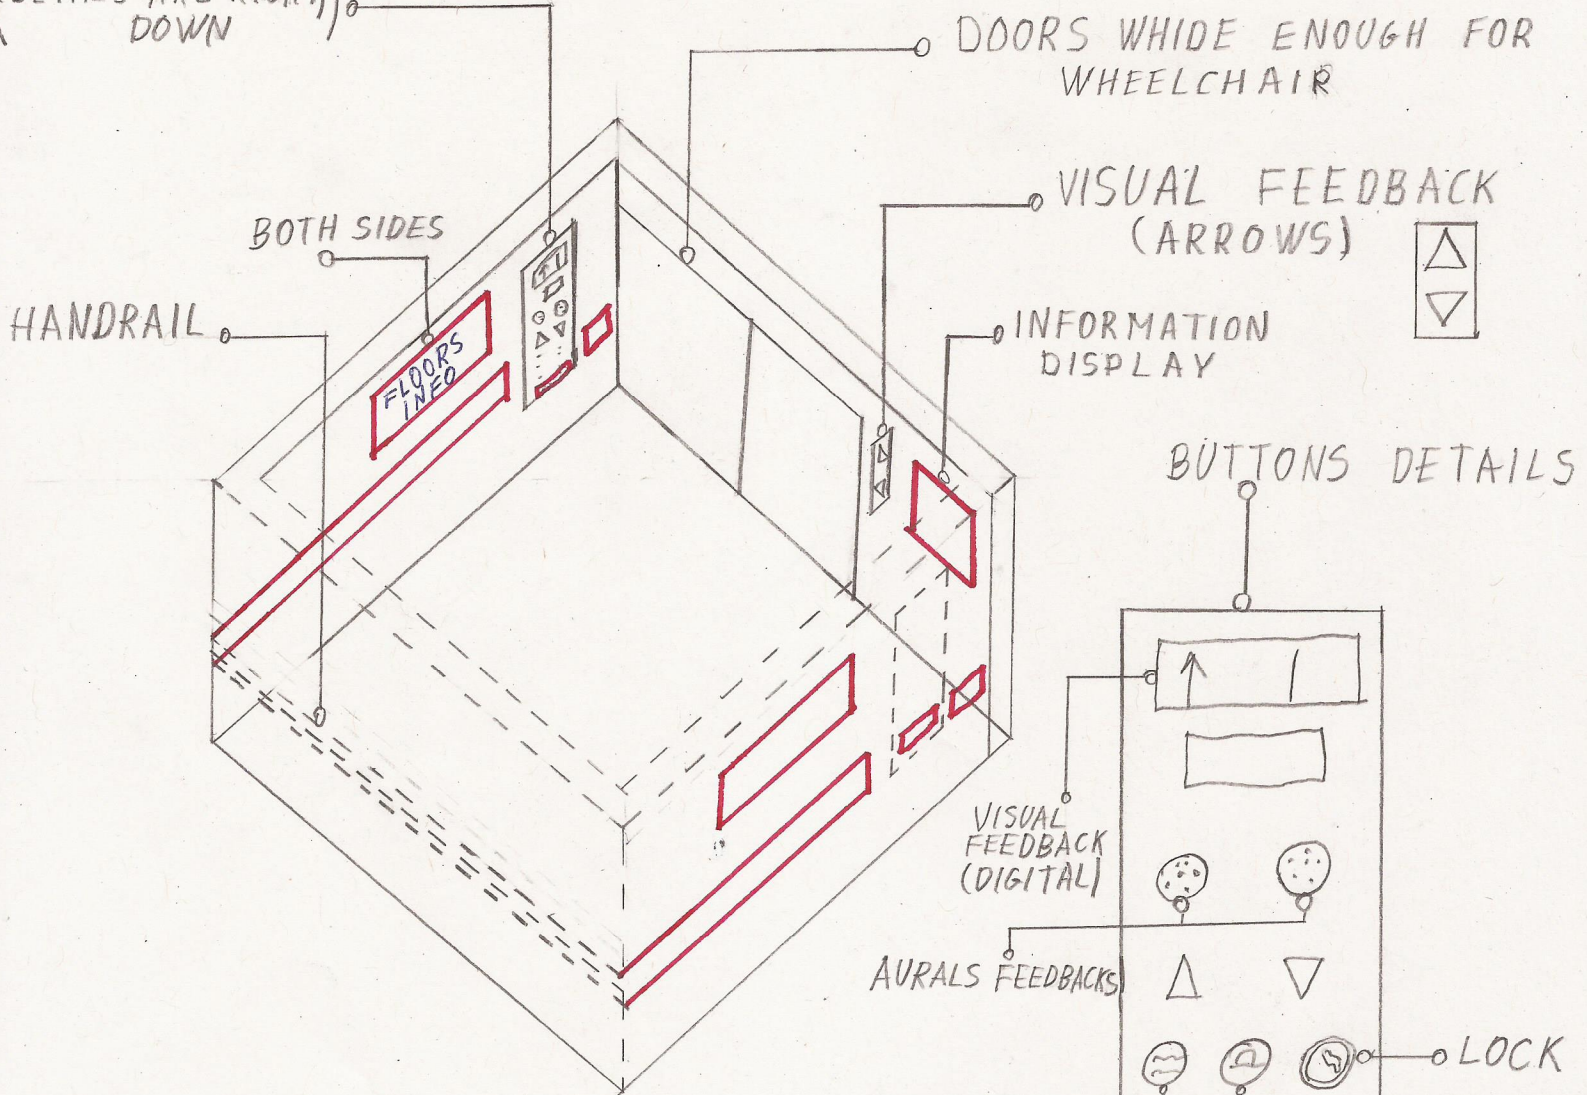 DOWN
DOORS WHIDE ENOUGH FOR
WHEELCHAIR
VISUAL FEEDBACK
(ARROWS)
BOTH SIDES
HANDRAIL
INFORMATION
DISPLAY
FLOORS
INFO
BUTTONS DETAILS
VISUAL
FEEDBACK
(DIGITAL)
AURALS FEEDBACKS
LOCK